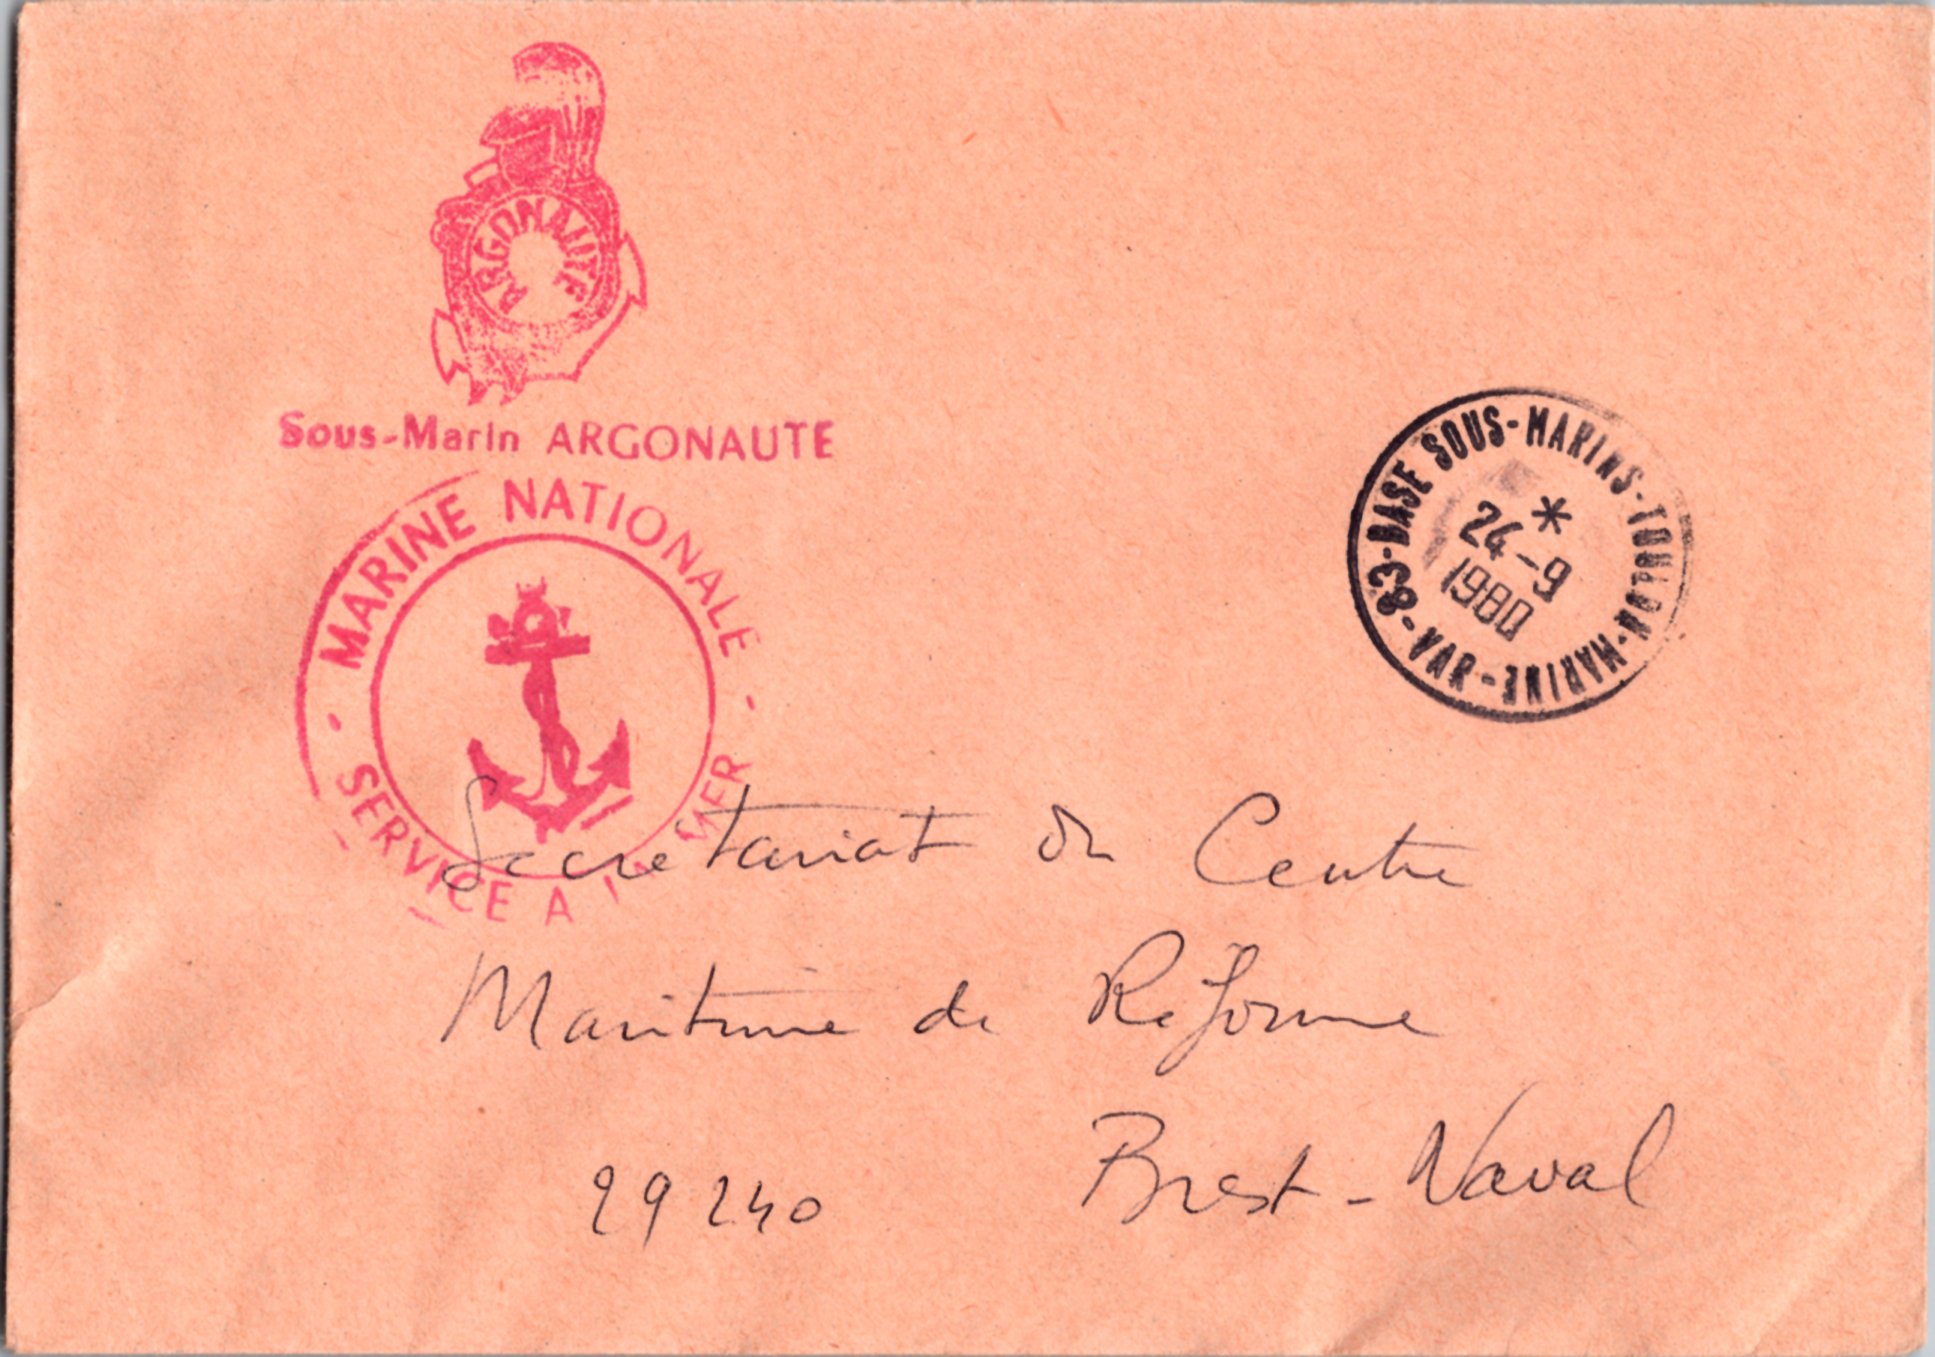 ARGONAUTE
Sous-Marin ARGONAUTE
MARINE NATIONALE
- SERVICE A LA MER -
83-BASE SOUS-MARINS-TOULON-MARINE-VAR-
*
24-9
1980
Secrétariat du Centre
Maritime de Réforme
29240 Brest-Naval